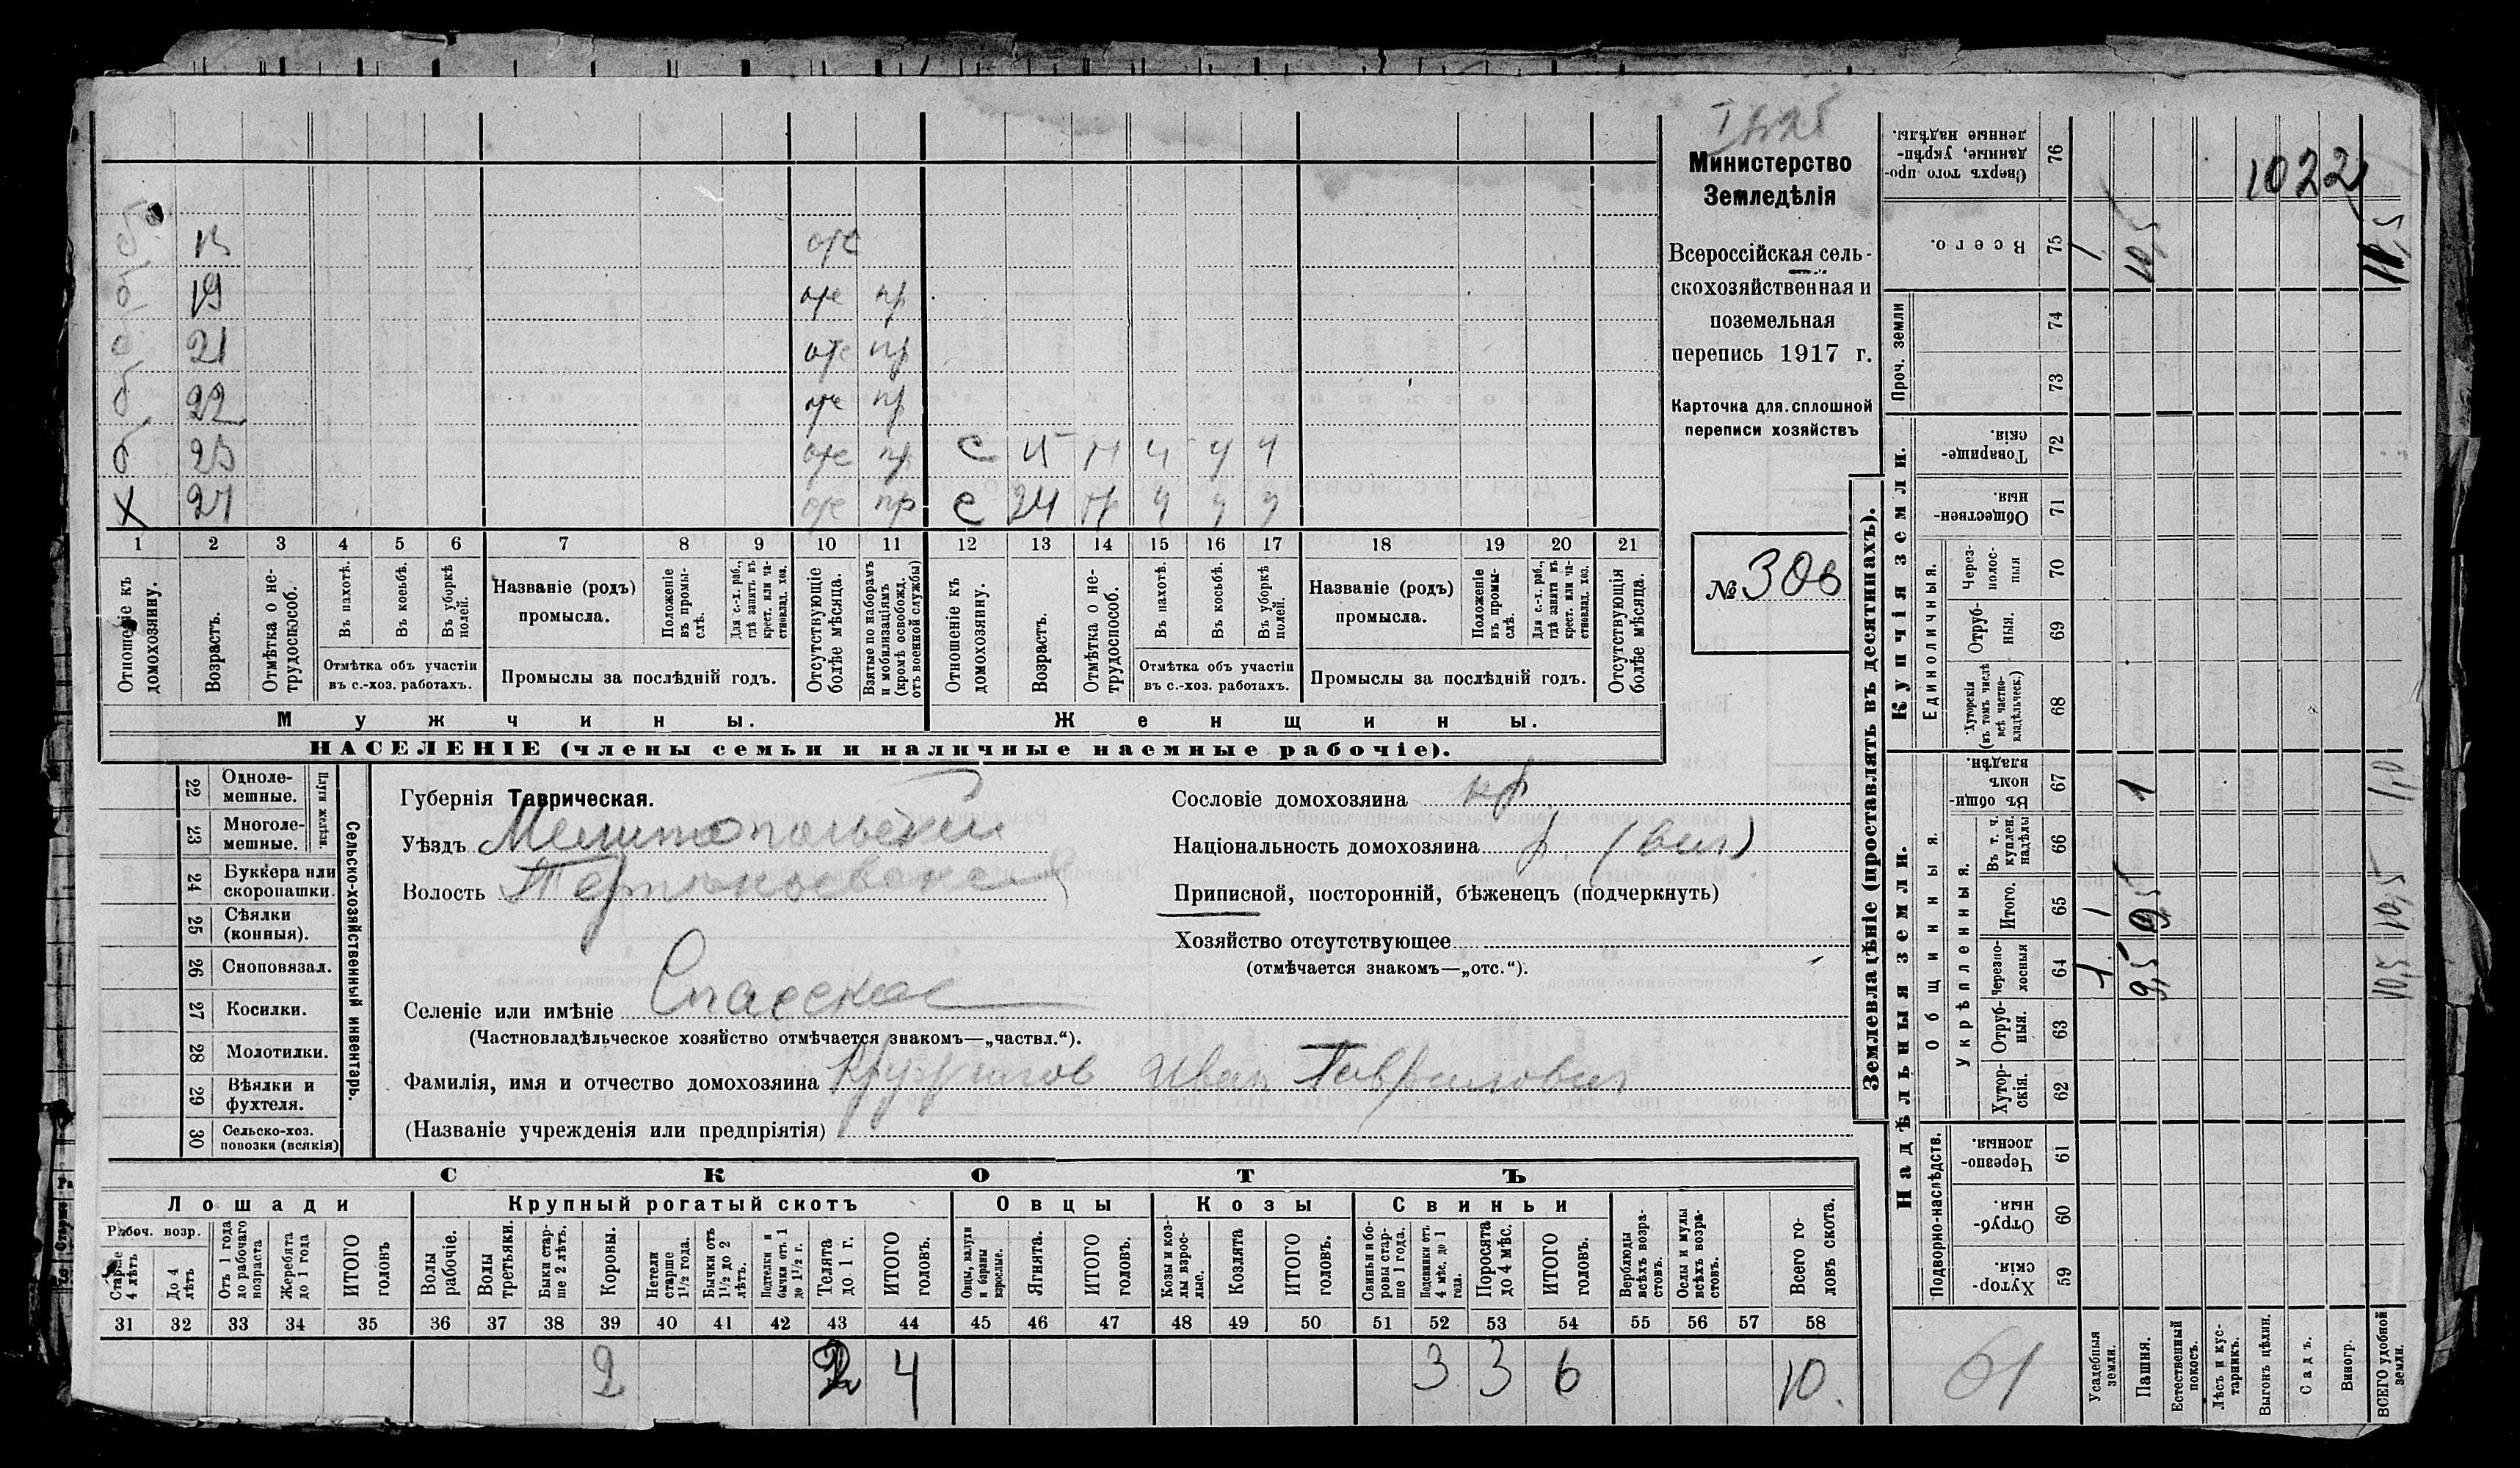 Министерство
Земледѣлія
Всероссійская сель-
скохозяйственная и
поземельная
перепись 1917 г.
Карточка для сплошной
переписи хозяйствъ
№ 306
13 отс
19 отс пр
21 отс пр
б 22 отс пр
б 23 отс пр с 15 н ч ч ч
х 27 отс пр с 24 н ч ч ч
1 2 3 4 5 6 7 8 9 10 11 12 13 14 15 16 17 18 19 20 21
Отношеніе къ домохозяину.
Возрастъ.
Отмѣтка о не-трудоспособ.
Въ пахотѣ.
Въ косьбѣ.
Въ уборкѣ полей.
Отмѣтка объ участіи
въ с.-хоз. работахъ.
Названіе (родъ)
промысла.
Положеніе въ промы-слѣ.
Для с.-х. раб., гдѣ занятъ въ крест. или ча-стновлад. хоз.
Промыслы за послѣдній годъ.
Отсутствующіе болѣе мѣсяца.
Взятые по наборамъ и мобилизаціямъ (кромѣ освобожд. отъ военной службы)
Отношеніе къ домохозяину.
Возрастъ.
Отмѣтка о не-трудоспособ.
Въ пахотѣ.
Въ косьбѣ.
Въ уборкѣ полей.
Отмѣтка объ участіи
въ с.-хоз. работахъ.
Названіе (родъ)
промысла.
Положеніе въ промы-слѣ.
Для с.-х. раб., гдѣ занята въ крест. или ча-стновлад. хоз.
Промыслы за послѣдній годъ.
Отсутствующія болѣе мѣсяца.
Мужчины.
Женщины.
НАСЕЛЕНІЕ (члены семьи и наличные наемные рабочіе).
22 Одноле-мешные.
23 Многоле-мешные.
Плуги желѣзн.
24 Буккера или скоропашки.
25 Сѣялки (конныя).
26 Сноповязал.
27 Косилки.
28 Молотилки.
29 Вѣялки и фухтеля.
30 Сельско-хоз. повозки (всякія)
Сельско-хозяйственный инвентарь.
Губернія Таврическая.
Уѣздъ Мелитопольскій
Волость
Селеніе или имѣніе Спасское
(Частновладѣльческое хозяйство отмѣчается знакомъ—„частвл.“).
Фамилія, имя и отчество домохозяина Иван Гаврилович
(Названіе учрежденія или предпріятія)
Сословіе домохозяина кр
Національность домохозяина р. (вел)
Приписной, посторонній, бѣженецъ (подчеркнуть)
Хозяйство отсутствующее
(отмѣчается знакомъ—„отс.“).
СКОТЪ
Лошади
Крупный рогатый скотъ
Овцы
Козы
Свиньи
Рабоч. возр.
Старше 4 лѣтъ
До 4 лѣтъ
Отъ 1 года до рабочаго возраста
Жеребята до 1 года
ИТОГО головъ
Волы рабочіе.
Волы третьяки.
Быки стар-ше 2 лѣтъ.
Коровы.
Нетели старше 1½ года.
Бычки отъ 1½ до 2 лѣтъ.
Подтелки и бычки отъ 1 до 1½ г.
Телята до 1 г.
ИТОГО головъ.
Овцы, валухи и бараны взрослые.
Ягнята.
ИТОГО головъ.
Козы и коз-лы взрос-лые.
Козлята
ИТОГО головъ.
Свиньи и бо-ровы стар-ше 1 года.
Подсвинки отъ 4 мѣс. до 1 года.
Поросята до 4 мѣс.
ИТОГО головъ.
Верблюды всѣхъ возра-стовъ.
Ослы и мулы всѣхъ возра-стовъ.
Всего го-ловъ скота.
31 32 33 34 35 36 37 38 39 40 41 42 43 44 45 46 47 48 49 50 51 52 53 54 55 56 57 58
2 2 4 3 3 6 10.
Землевладѣніе (проставлять въ десятинахъ).
Надѣльныя земли.
Купчія земли.
Проч. земли
Подворно-наслѣдств.
Общинныя.
Укрѣпленныя.
Единоличныя.
Хутор-скія. 59
Отруб-ныя. 60
Черезпо-лосныя. 61
Хутор-скія. 62
Отруб-ныя. 63
Черезпо-лосныя 64
Итого. 65
Въ т. ч. куплен. надѣлы 66
Въ общин-номъ владѣн. 67
Хуторскія (въ томъ числѣ всѣ частно-владѣльческ.) 68
Отруб-ныя. 69
Через-полос-ныя 70
Обществен-ныя 71
Товарище-скія. 72
73
74
Всего. 75
Сверхъ того про-данные, укрѣп-ленные надѣлы. 76
Усадебныя земли.
Пашня.
Естественный покосъ.
Лѣсъ и кус-тарникъ.
Выгонъ цѣлин.
Садъ.
Виногр.
ВСЕГО удобной земли.
1 9,5 10,5
1 9,5 10,5
1 1,0
1 10,5 11,5
1022
61